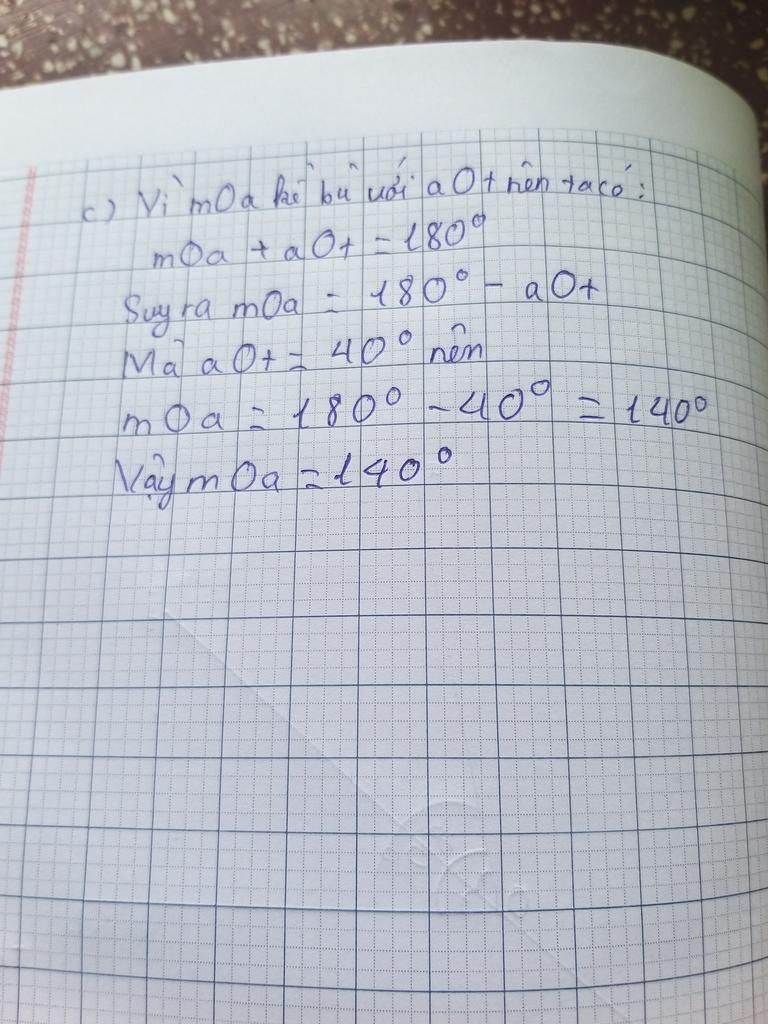 c) Vì mOa kề bù với aOt nên ta có:
mOa + aOt = 180°
Suy ra mOa = 180° - aOt
Mà aOt = 40° nên
mOa = 180° - 40° = 140°
Vậy mOa = 140°